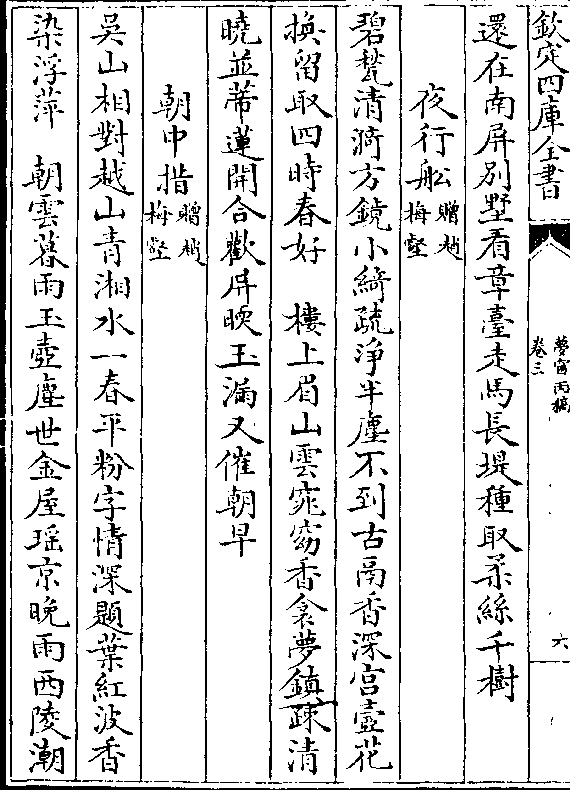 欽定四庫全書
夢窗丙稿
卷三
六
還在南屏別墅看章臺走馬長堤種取柔絲千樹
夜行船贈趙梅壑
碧甃清漪方鏡小綺疏淨半塵不到古鬲香深宮壺花
換留取四時春好　樓上眉山雲窈窕香衾夢鎮疎清
曉並蒂蓮開合歡屏暖玉漏又催朝早
朝中措贈趙梅壑
吳山相對越山青湘水一春平粉字情深題葉紅波香
染浮萍　朝雲暮雨玉壺塵世金屋瑶京晚雨西陵潮